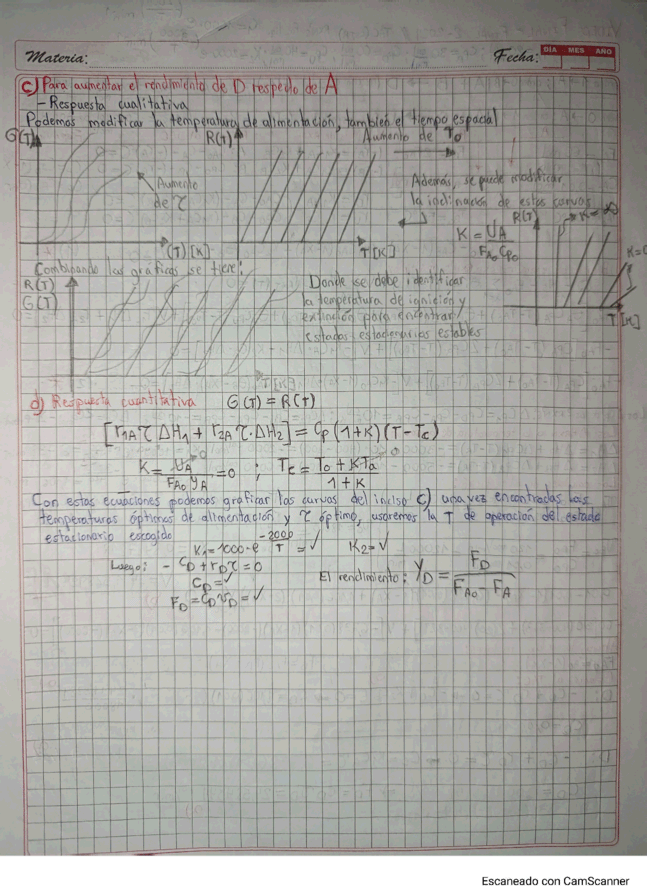 Materia:
Fecha:
DÍA MES AÑO
c) Para aumentar el rendimiento de D respecto de A
- Respuesta cualitativa
Podemos modificar la temperatura de alimentación, también el tiempo espacial
G(T)
R(T)
Aumento de T₀
Aumento
de τ
(T) [K]
T [K]
Además, se puede modificar
la inclinación de estas curvas
K = UA / FA₀ Cp₀
R(T)
K = ∞
K=0
T [K]
Combinando las gráficas se tiene:
R(T)
G(T)
T [K]
Donde se debe identificar
la temperatura de ignición y
extinción para encontrar
estados estacionarios estables
d) Respuesta cuantitativa G(T) = R(T)
[r1A τ ΔH₁ + r2A τ·ΔH₂] = Cp (1+K)(T-Tc)
K = UA→0 / FA₀ yA = 0 ; Tc = T₀ + KTa→0 / 1+K
Con estas ecuaciones podemos graficar las curvas del inciso c) una vez encontradas las
temperaturas óptimas de alimentación y τ óptimo, usaremos la T de operación del estado
estacionario escogido
K₁=1000·e^(-2000/T) = ✓ K₂=✓
Luego: - CD + rDτ = 0
CD=✓
FD = CD νD = ✓
El rendimiento: YD = FD / FA₀ - FA
Escaneado con CamScanner